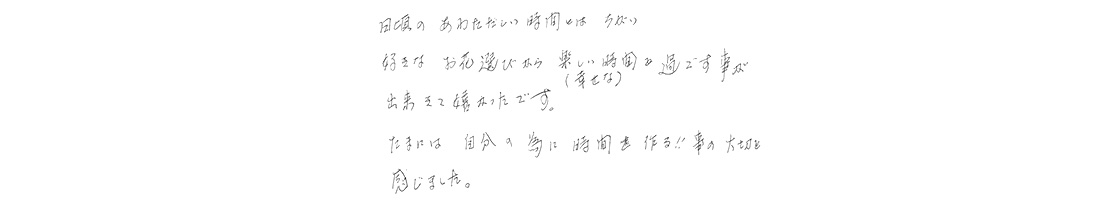 日頃の あわただしい時間とは ちがい
好きな お花選びから 楽しい時間を過ごす事が
(幸せな)
出来きて嬉かったです。
たまには 自分の為に時間を作る!!事の大切を
感じました。